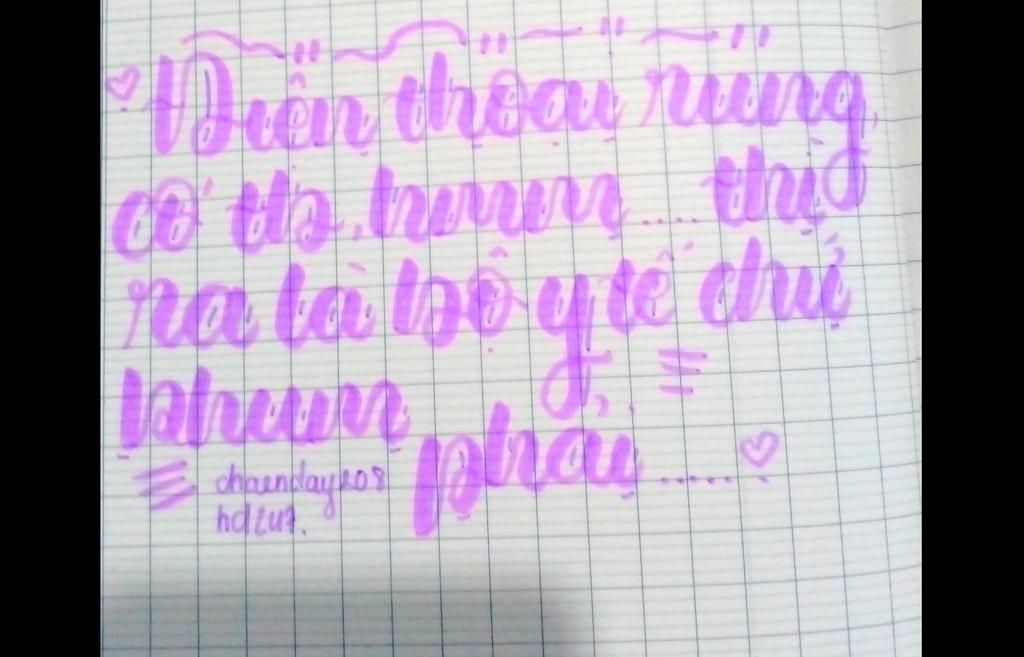 Điện thoại rung
có tb, hmm.... thì
ra là bộ y tế chứ
khum phải.....
chaenday208